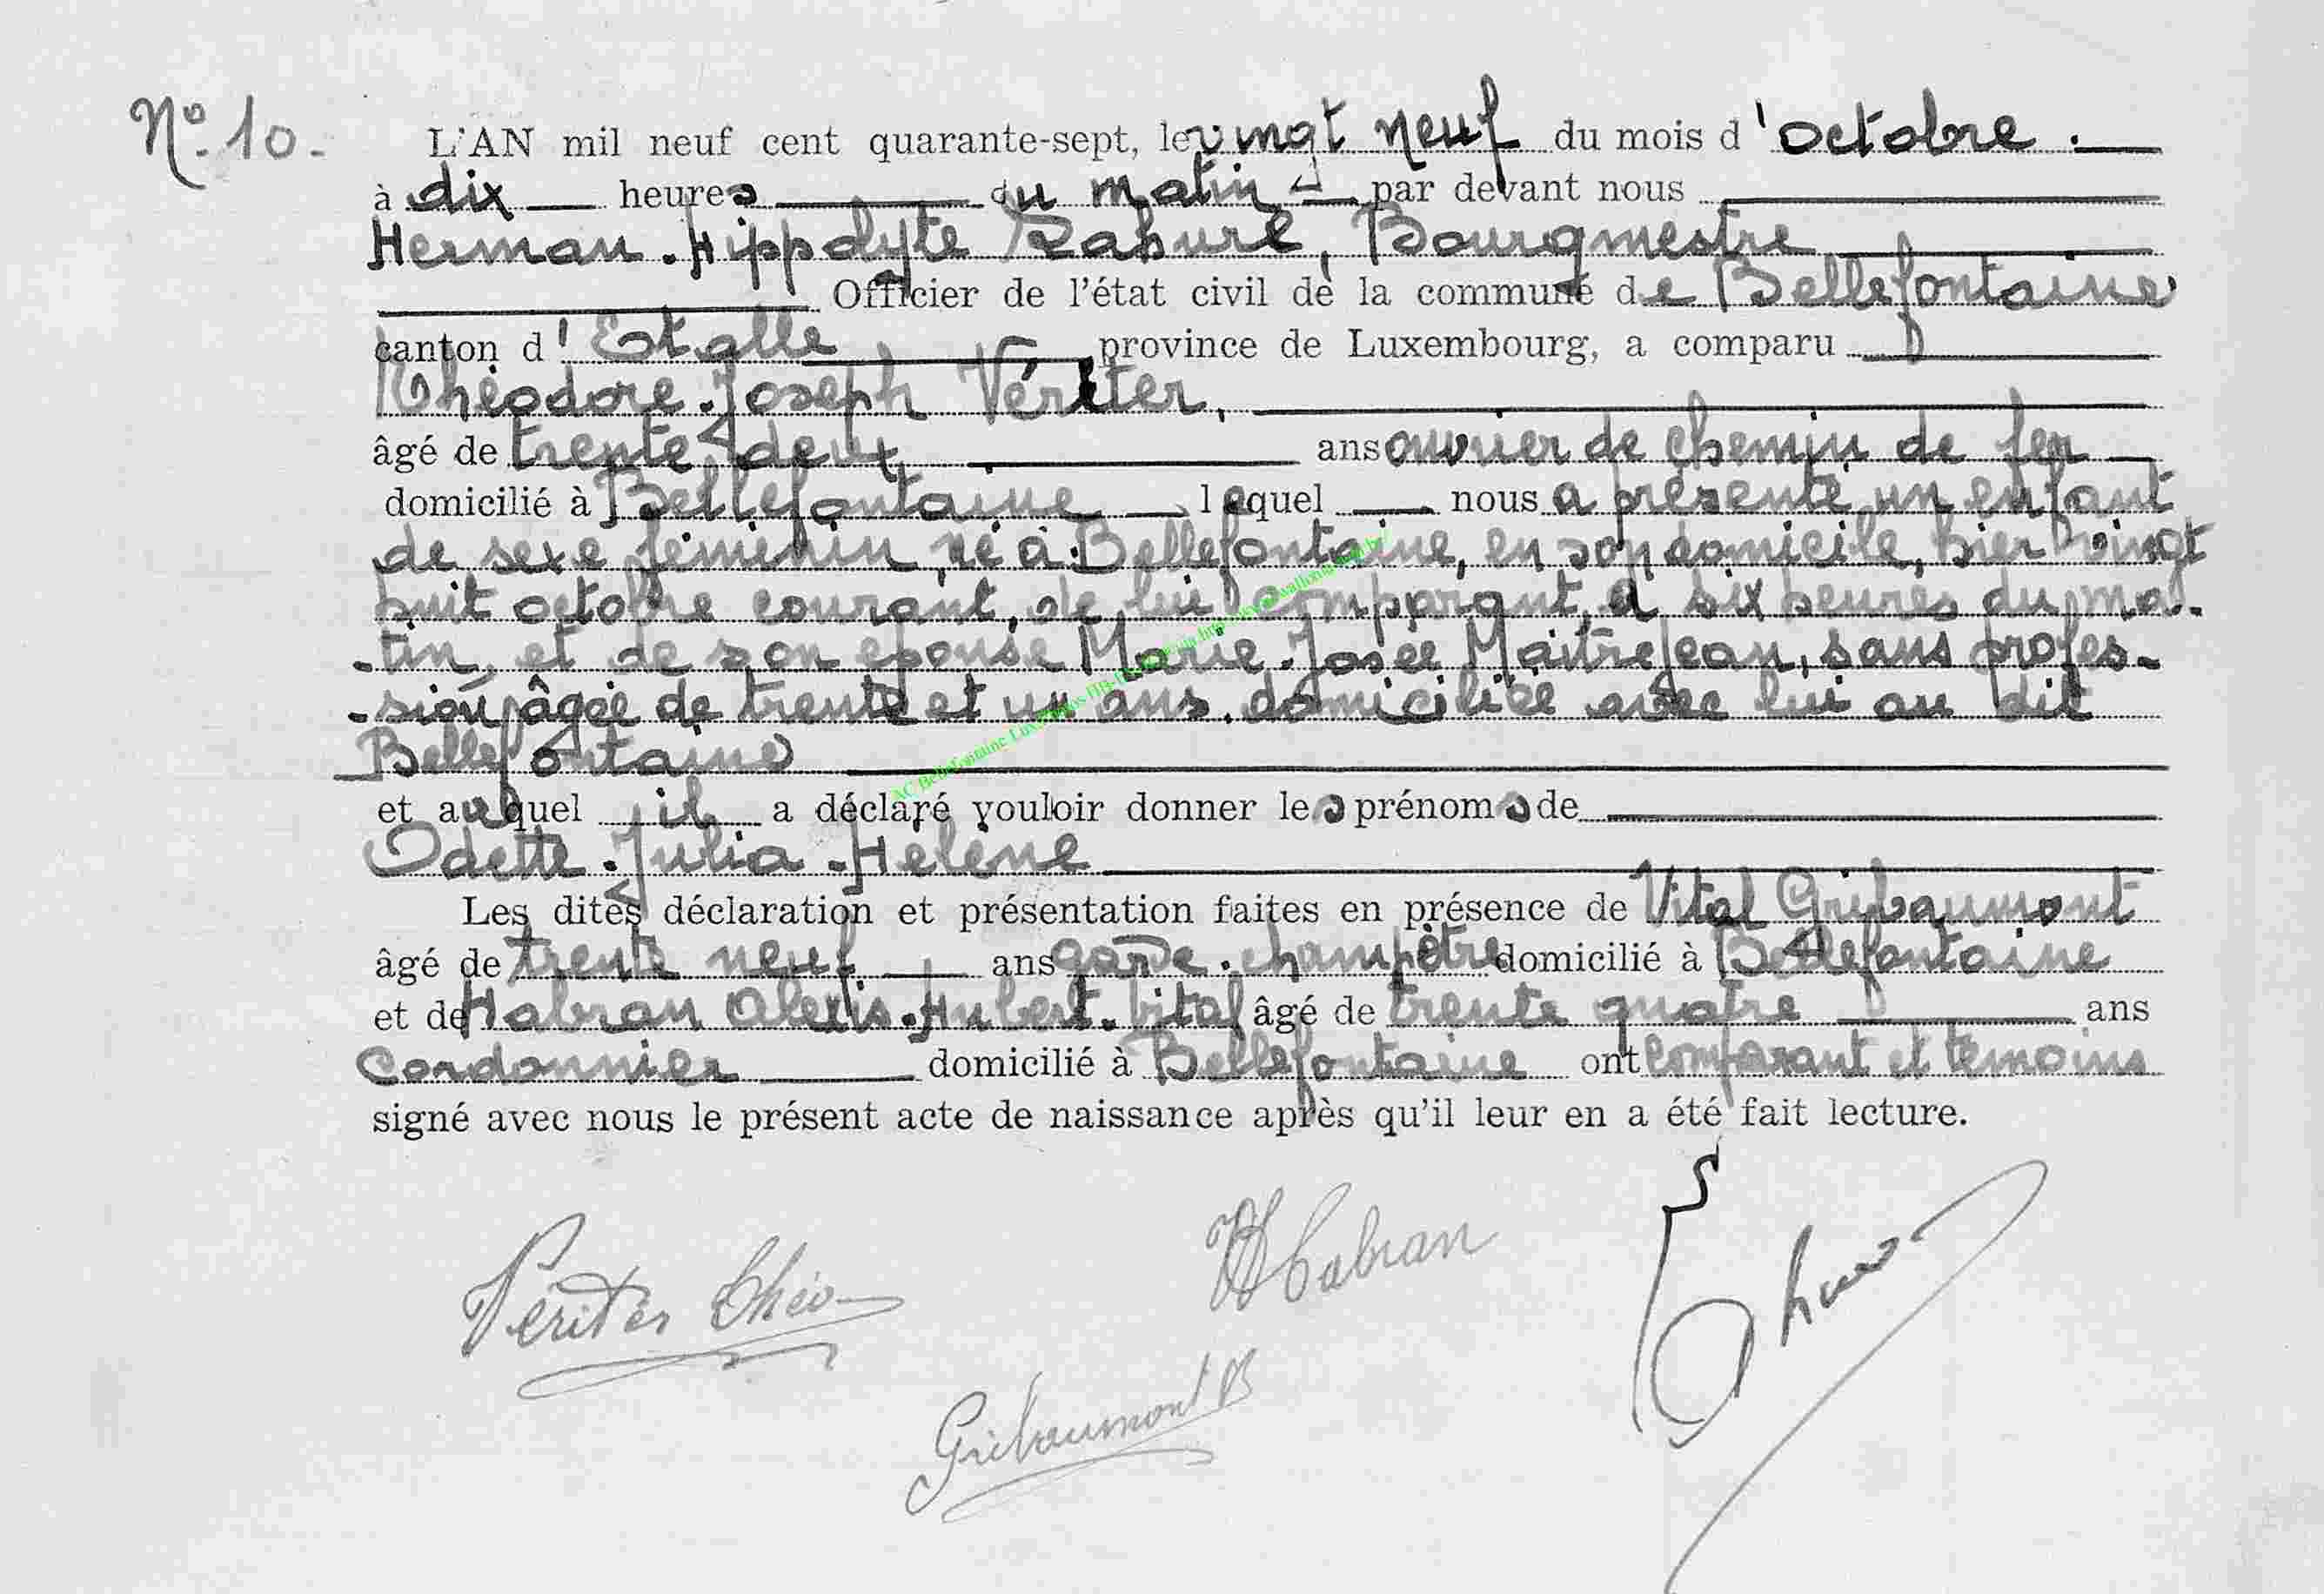 N° 10.
L'AN mil neuf cent quarante-sept, le vingt neuf du mois d'octobre.
à dix heures du matin par devant nous
Herman-Hippolyte Lahure, Bourgmestre
Officier de l'état civil de la commune de Bellefontaine
canton d'Etalle, province de Luxembourg, a comparu
Théodore-Joseph Vériter,
âgé de trente-deux ans ouvrier de chemin de fer
domicilié à Bellefontaine lequel nous a présenté un enfant
de sexe féminin, né à Bellefontaine, en son domicile, hier vingt
huit octobre courant, de lui comparant, à six heures du ma-
-tin, et de son épouse Marie-Josée Maitrejean, sans profes-
-sion, âgée de trente et un ans, domiciliée avec lui au dit
Bellefontaine
et auquel il a déclaré vouloir donner les prénoms de
Odette-Julia-Hélène
Les dites déclaration et présentation faites en présence de Vital Gribaumont
âgé de trente neuf ans garde-champêtre domicilié à Bellefontaine
et de Habran Alexis-Hubert-Vital âgé de trente quatre ans
Cordonnier domicilié à Bellefontaine ont comparant et témoins
signé avec nous le présent acte de naissance après qu'il leur en a été fait lecture.
Vériter Théo
Habran
Gribaumont